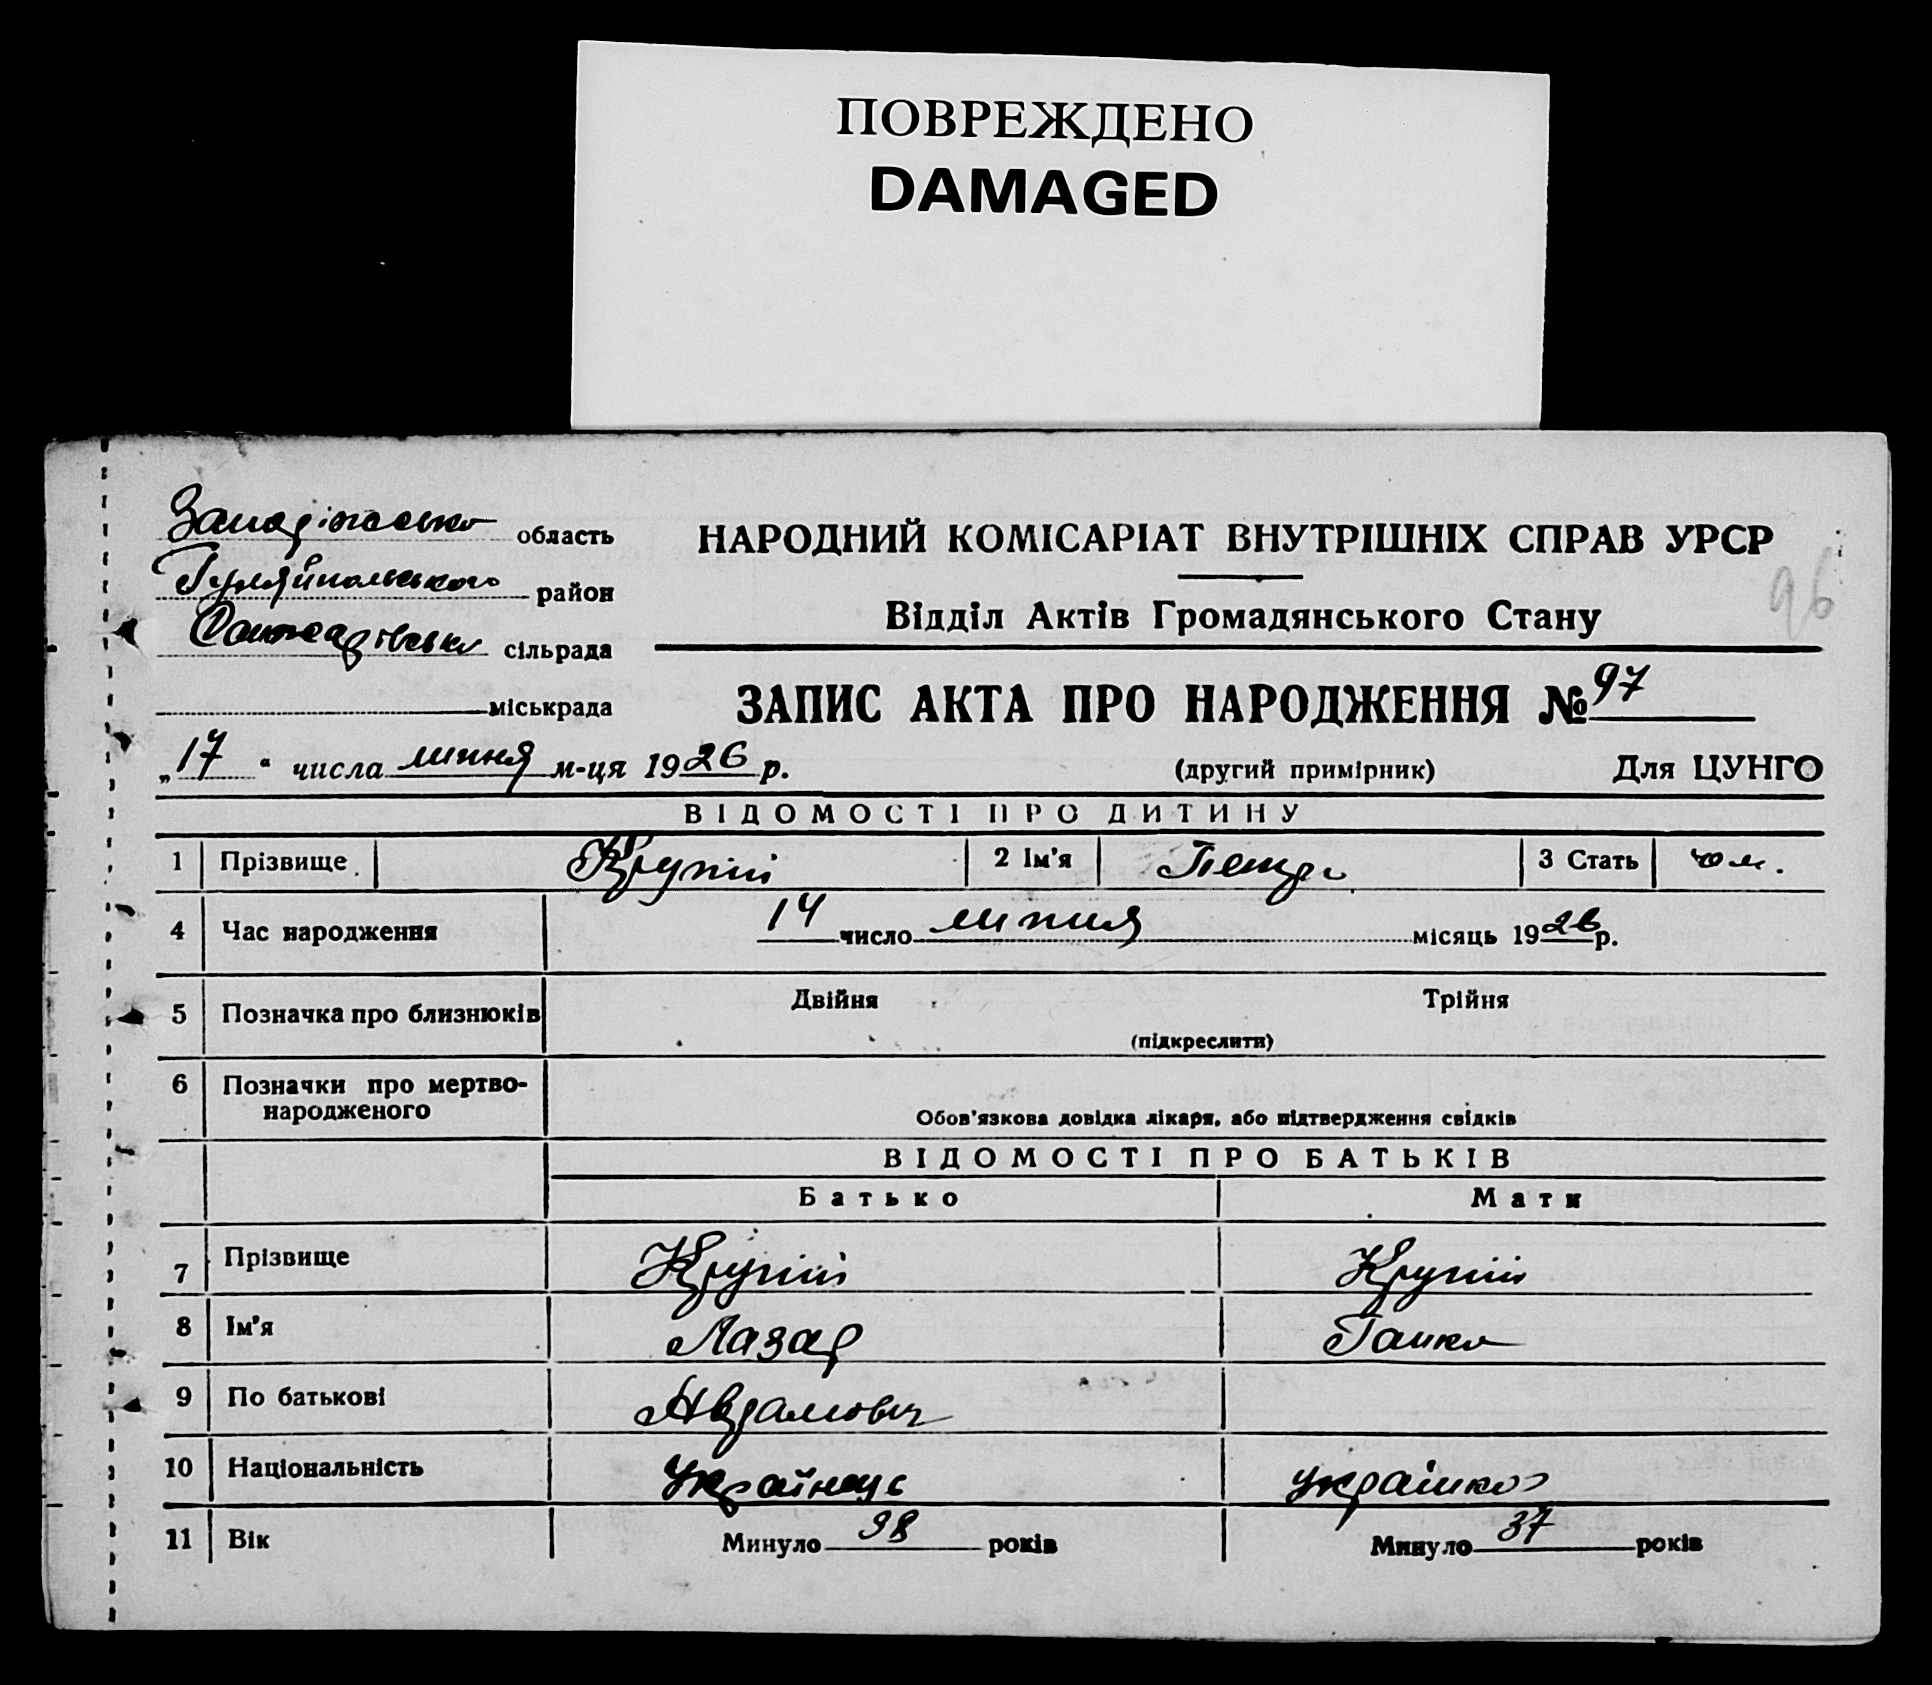 ПОВРЕЖДЕНО
DAMAGED
Запоріжська область
Гуляйпольського район
Санжарівська сільрада
міськрада
НАРОДНИЙ КОМІСАРІАТ ВНУТРІШНІХ СПРАВ УРСР
96
Відділ Актів Громадянського Стану
ЗАПИС АКТА ПРО НАРОДЖЕННЯ № 97
„17“ числа липня м-ця 1926 р.
(другий примірник) Для ЦУНГО
ВІДОМОСТІ ПРО ДИТИНУ
1 Прізвище Крупій 2 Ім'я Петро 3 Стать чол.
4 Час народження 14 число липня місяць 1926 р.
5 Позначка про близнюків Двійня Трійня
(підкреслити)
6 Позначки про мертво-
народженого
Обов'язкова довідка лікаря, або підтвердження свідків
ВІДОМОСТІ ПРО БАТЬКІВ
Батько Мати
7 Прізвище Крупій Крупій
8 Ім'я Лазар Ганна
9 По батькові
10 Національність Українець українка
11 Вік Минуло 38 років Минуло 37 років